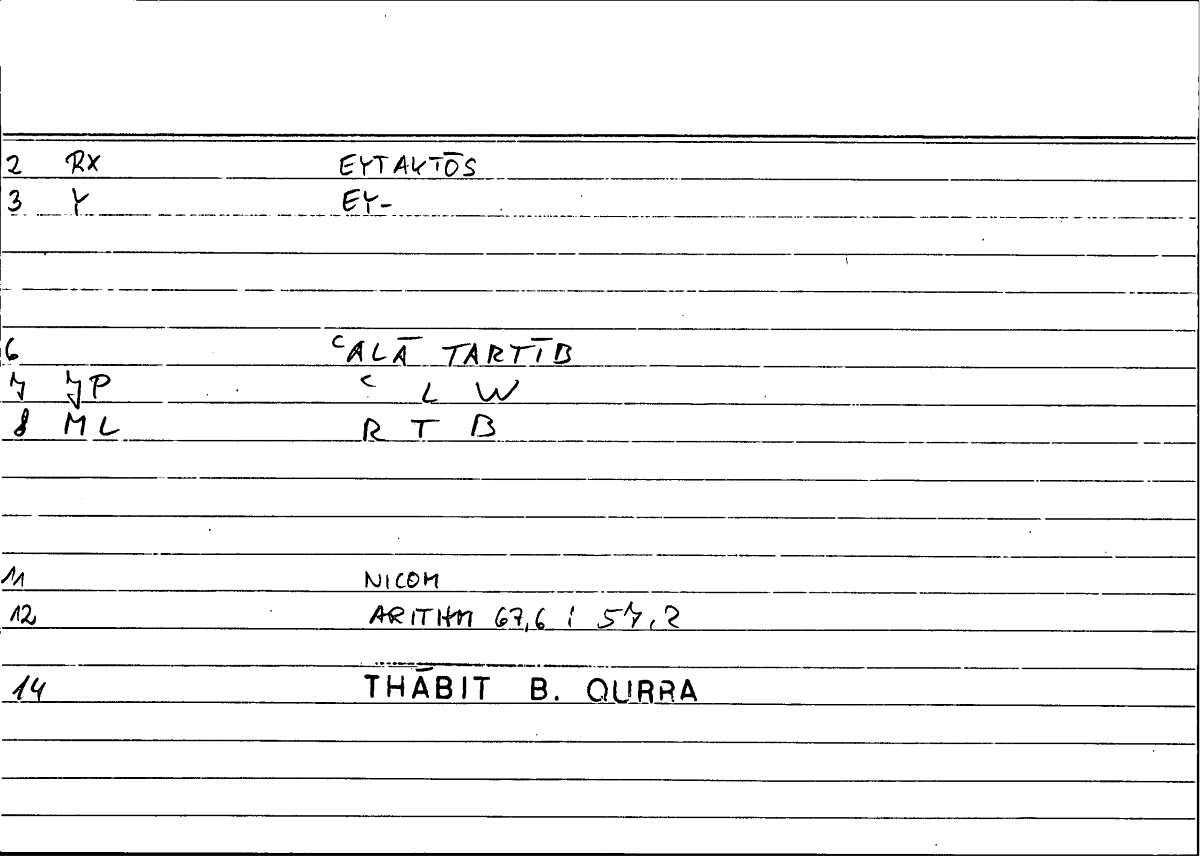 2 RX EYTAKTŌS
3 Y EY-
6 ʿALĀ TARTĪB
7 JP ʿ L W
8 ML R T B
11 NICOM
12 ARITHM 67,6 ; 57,2
14 THĀBIT B. QURRA